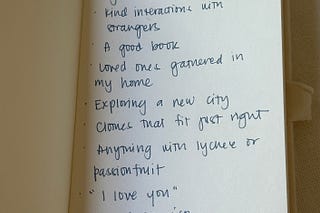 · Kind interactions with
strangers
· A good book
· Loved ones gathered in
my home
· Exploring a new city
· Clothes that fit just right
· Anything with lychee or
passionfruit
· "I love you"